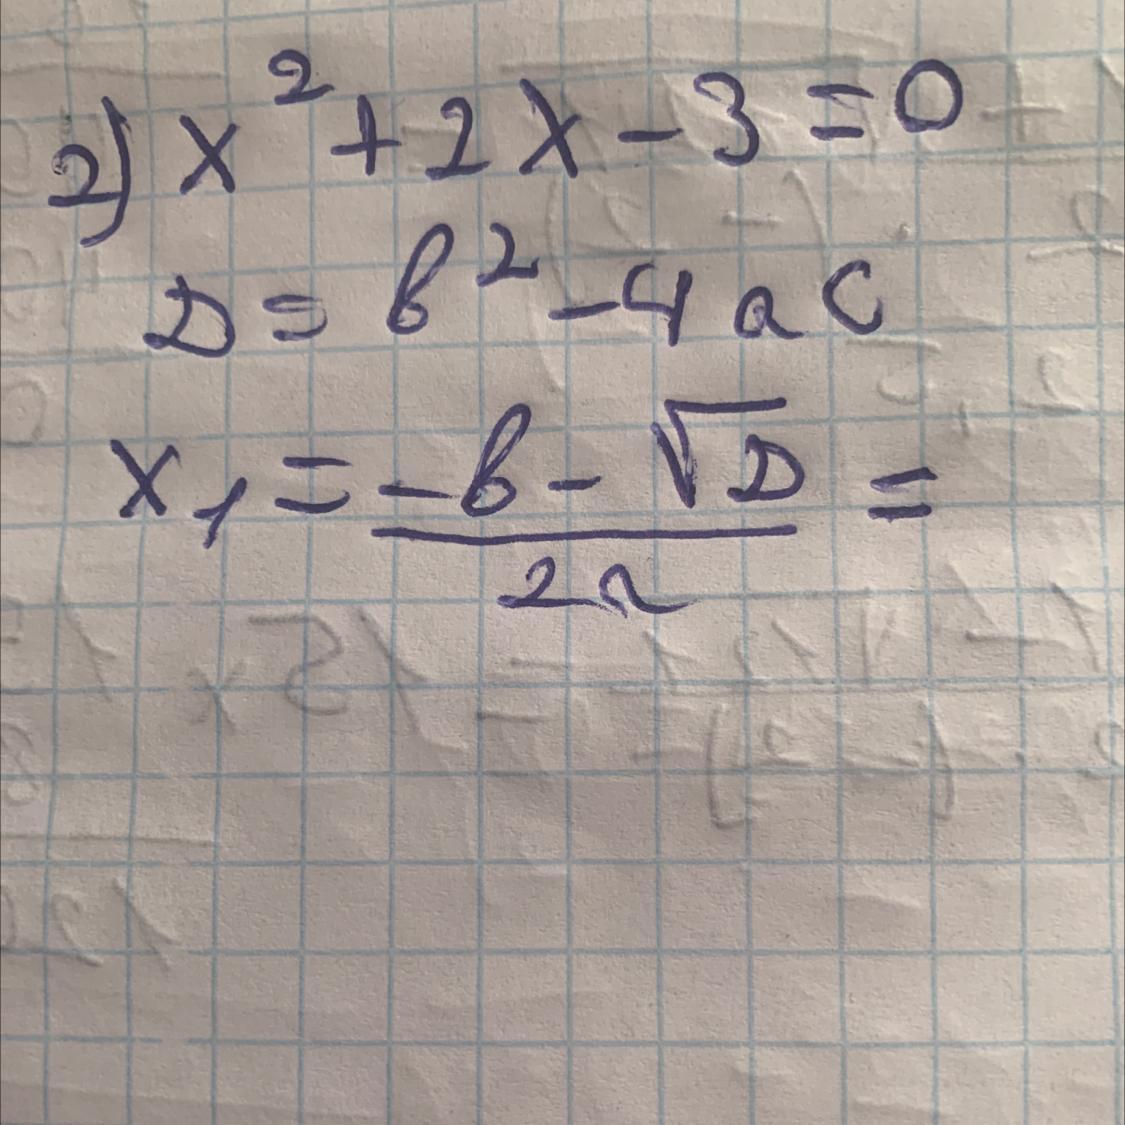 2) x² + 2x - 3 = 0
D = b² - 4ac
x₁ = (-b - √D) / 2a =